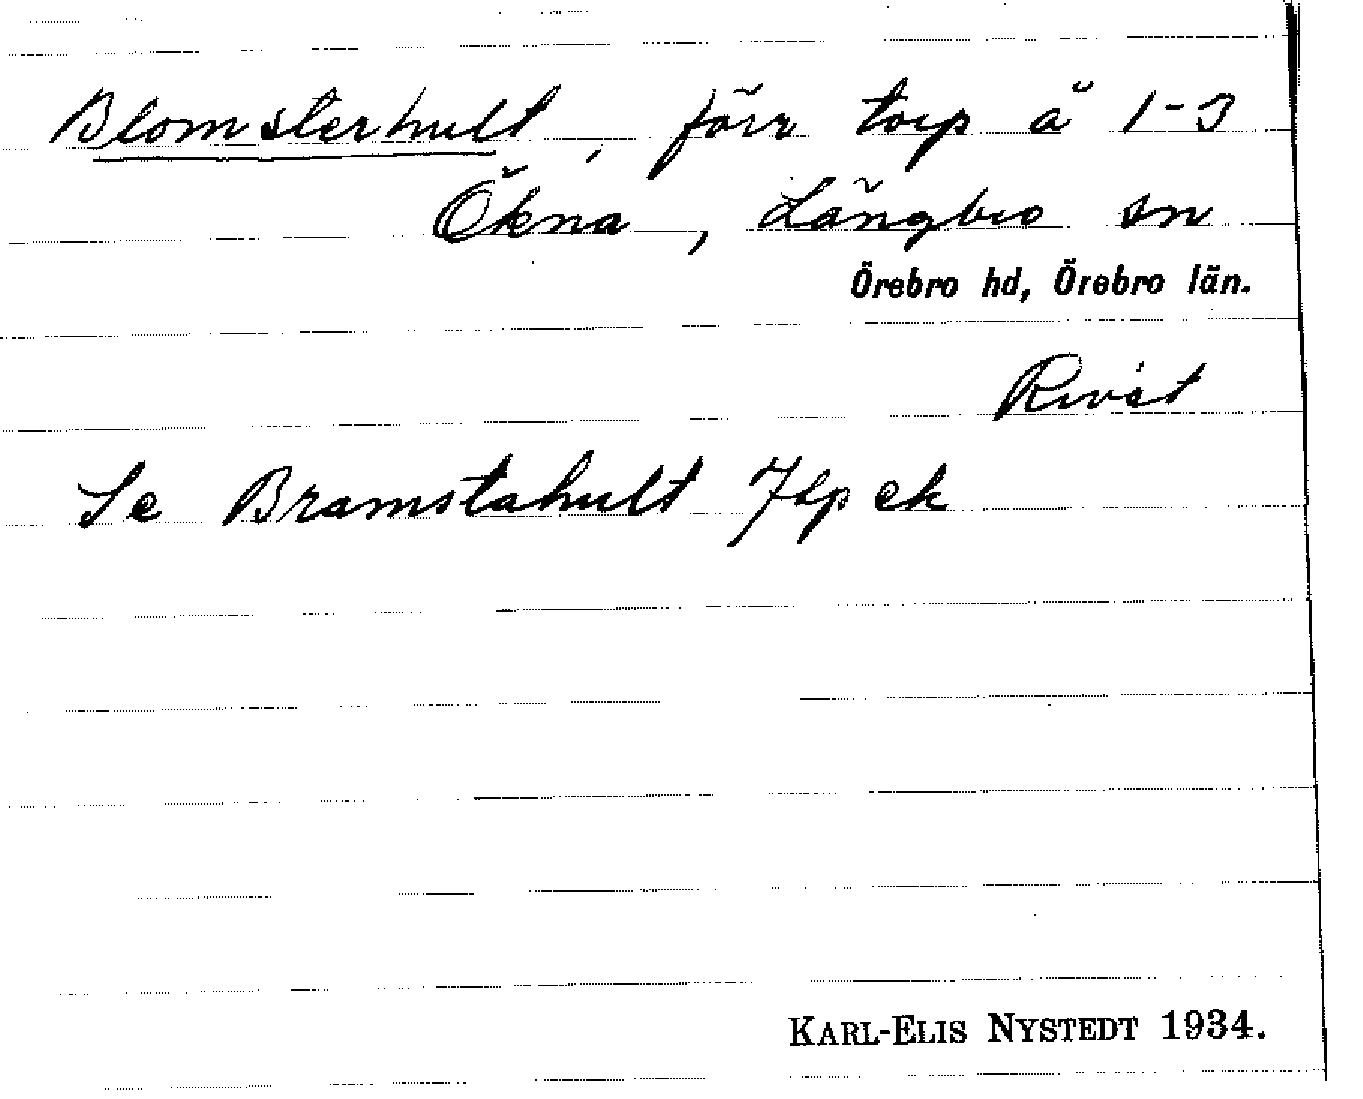 Blomsterhult, förr torp å 1-3
Ökna, Längbro sn
Örebro hd, Örebro län.
Rivet
Se Bramstahult Jlp ek
KARL-ELIS NYSTEDT 1934.